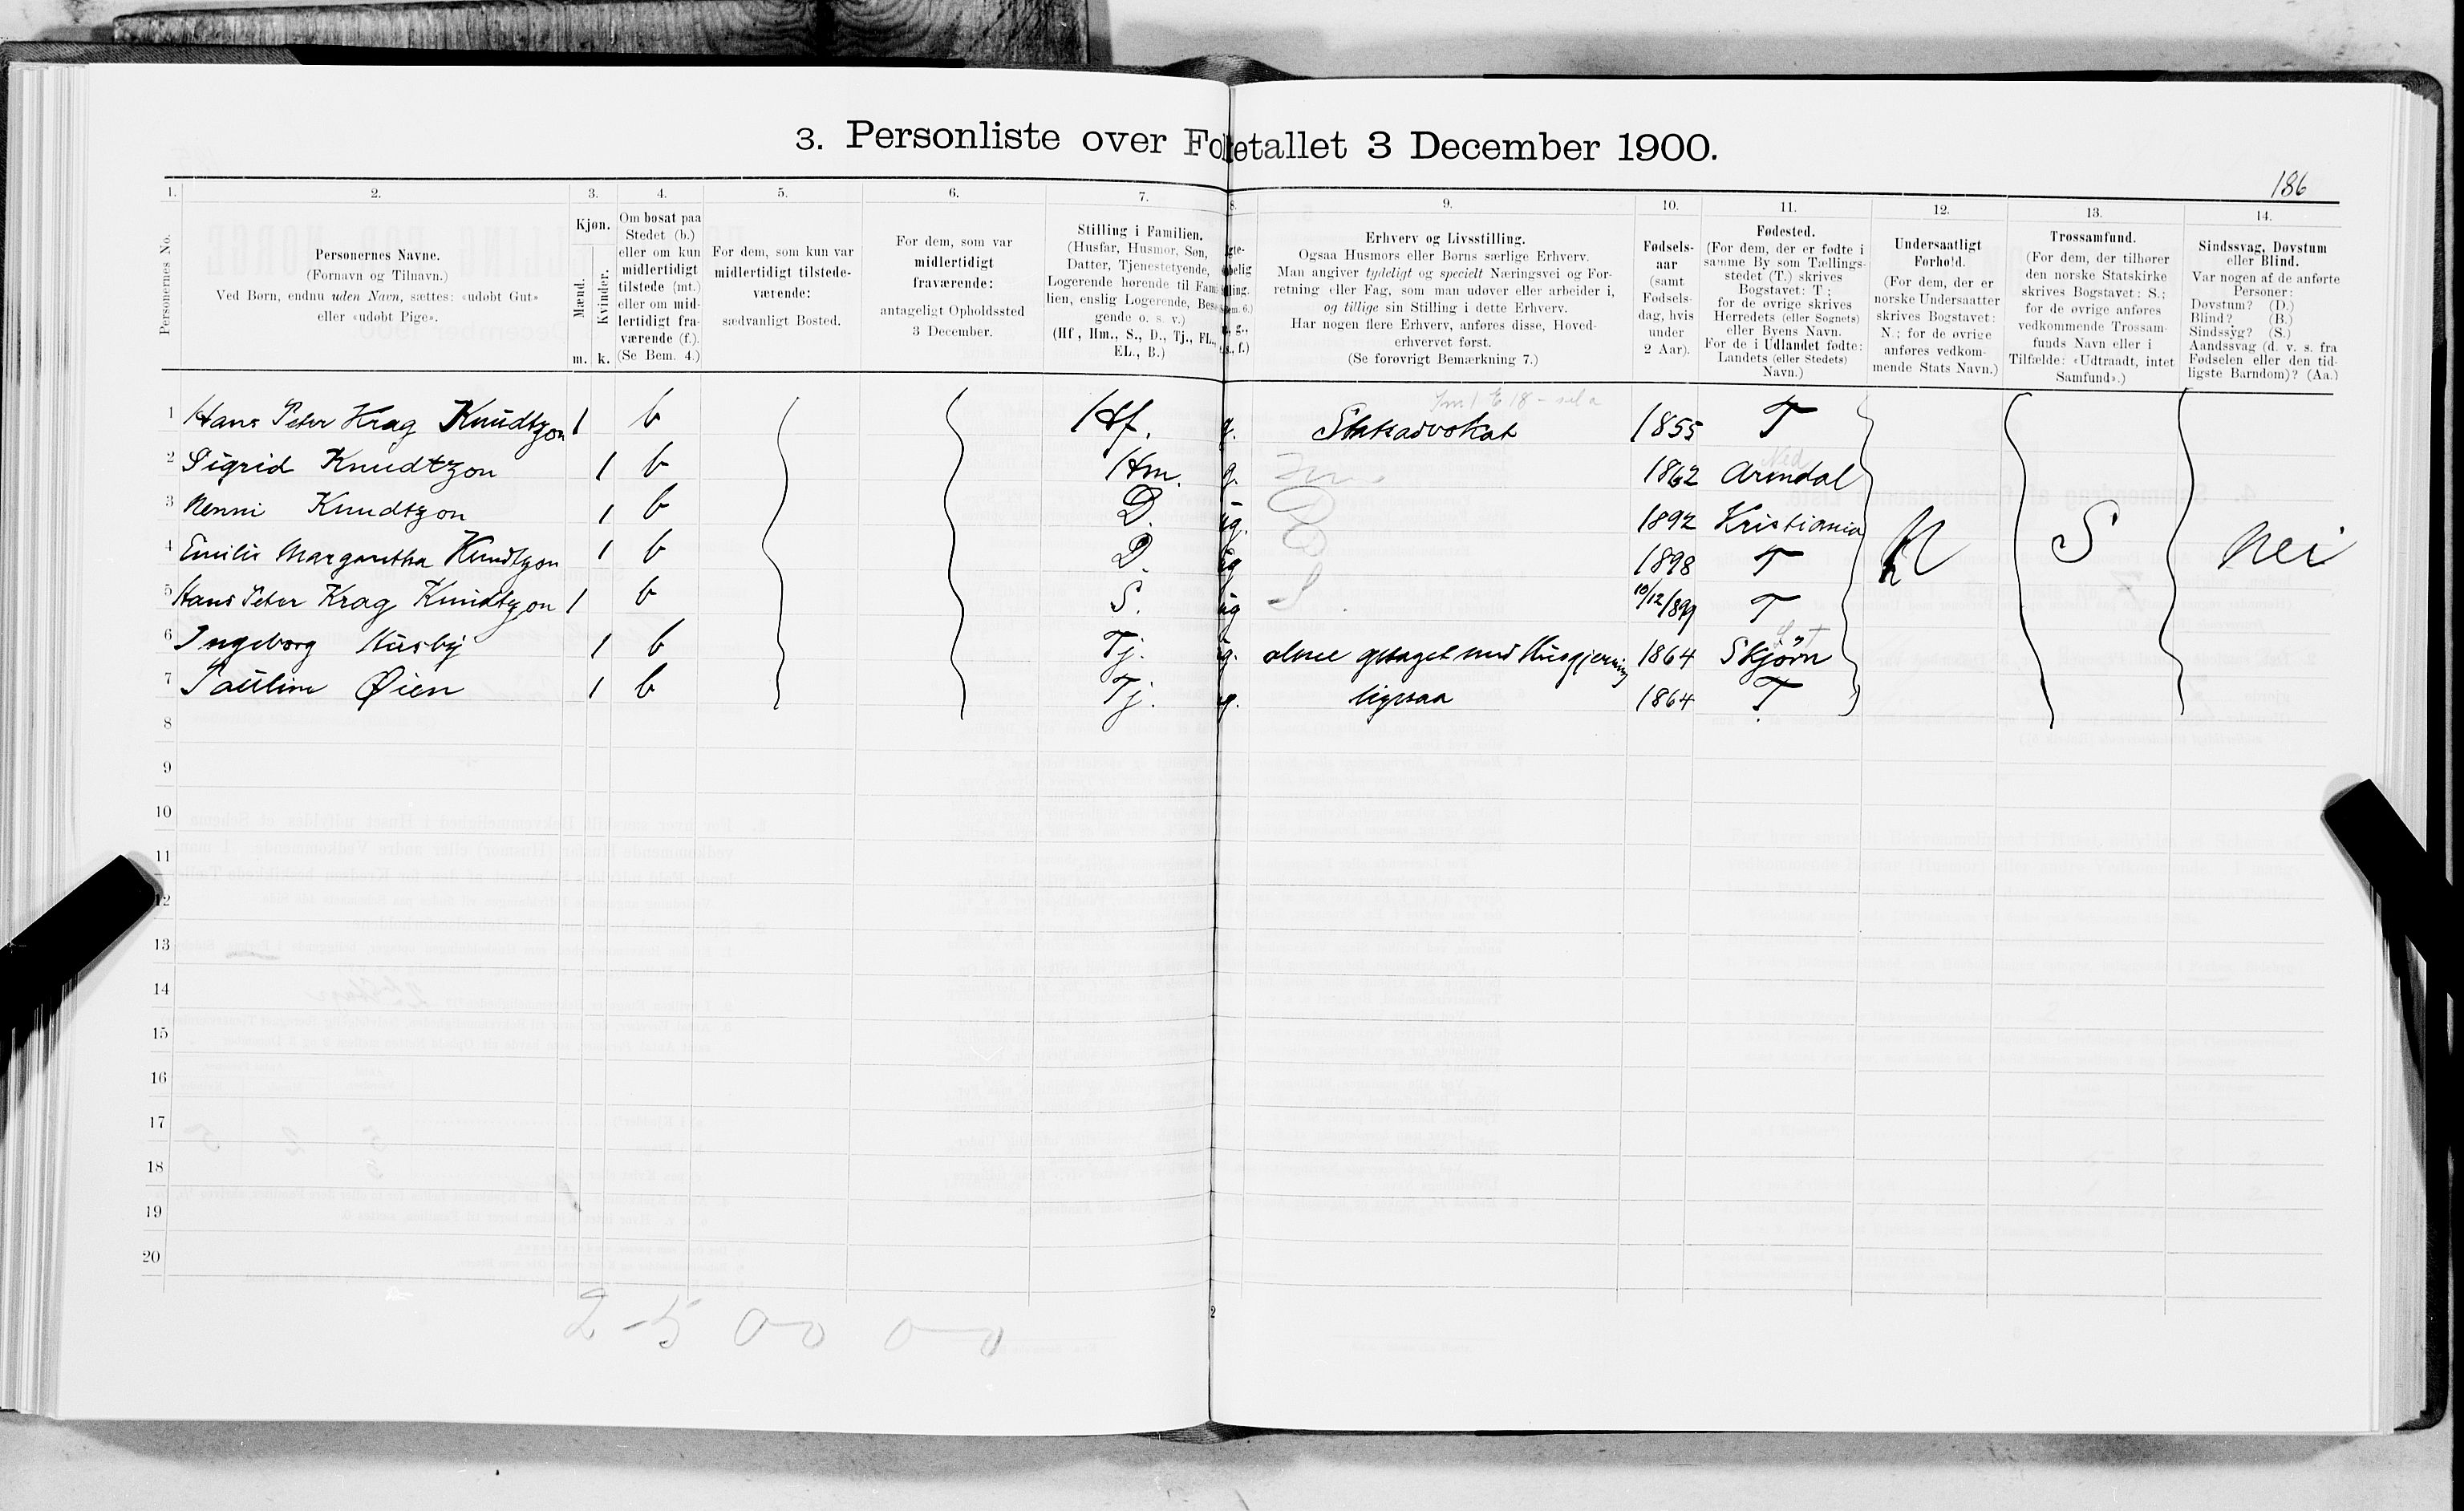 3. Personliste over Folketallet 3 December 1900.
186
1. 2. 3. 4. 5. 6. 7. 8. 9. 10. 11. 12. 13. 14.
Personernes No.
Personernes Navne.
(Fornavn og Tilnavn.)
Ved Børn, endnu uden Navn, sættes: «udøbt Gut»
eller «udøbt Pige».
Kjøn.
Mænd.
Kvinder.
m. k.
Om bosat paa
Stedet (b.)
eller om kun
midlertidigt
tilstede (mt.)
eller om mid-
lertidigt fra-
værende (f.).
(Se Bem. 4.)
For dem, som kun var
midlertidigt tilstede-
værende:
sædvanligt Bosted.
For dem, som var
midlertidigt
fraværende:
antageligt Opholdssted
3 December.
Stilling i Familien.
(Husfar, Husmor, Søn,
Datter, Tjenestetyende,
Logerende hørende til Fami-
lien, enslig Logerende, Besø-
gende o. s. v.)
(Hf, Hm., S., D., Tj., FL.,
EL., B.)
Erhverv og Livsstilling.
Ogsaa Husmors eller Børns særlige Erhverv.
Man angiver tydeligt og specielt Næringsvei og For-
retning eller Fag, som man udøver eller arbeider i,
og tillige sin Stilling i dette Erhverv.
Har nogen flere Erhverv, anføres disse, Hoved-
erhvervet først.
(Se forøvrigt Bemærkning 7.)
Fødsels-
aar
(samt
Fødsels-
dag, hvis
under
2 Aar).
Fødested.
(For dem, der er fødte i
samme By som Tællings-
stedet (T.) skrives
Bogstavet: T;
for de øvrige skrives
Herredets (eller Sognets)
eller Byens Navn.
For de i Udlandet fødte:
Landets (eller Stedets)
Navn.)
Undersaatligt
Forhold.
(For dem, der er
norske Undersaatter
skrives Bogstavet:
N.; for de øvrige
anføres vedkom-
mende Stats Navn.)
Trossamfund.
(For dem, der tilhører
den norske Statskirke
skrives Bogstavet: S.;
for de øvrige anføres
vedkommende Trossam-
funds Navn eller i
Tilfælde: «Udtraadt, intet
Samfund».)
Sindssvag, Døvstum
eller Blind.
Var nogen af de anførte
Personer:
Døvstum? (D.)
Blind? (B.)
Sindssyg? (S.)
Aandssvag (d. v. s. fra
Fødselen eller den tid-
ligste Barndom)? (Aa.)
1 Hans Peter Krag Knudtzon 1 b Hf. g. Statsadvokat 1855 T
2 Sigrid Knudtzon 1 b Hm. g. Hm. 1862 Arendal
3 Nenni Knudtzon 1 b D. ug. D 1892 Kristiania
4 Emilie Margaretha Knudtzon 1 b D. ug D 1898 T N S Nei
5 Hans Peter Krag Knudtzon 1 b S. ug S. 10/12/899 T
6 Ingeborg Husby 1 b Tj. ug. alene optaget med Husgjerning 1864 Skjörn
7 Pauline Øien 1 b Tj. ug. ligesaa 1864 T
8
9
10
11
12
13
14
15
16
17
18
19
20
2-5 00 0-0
2